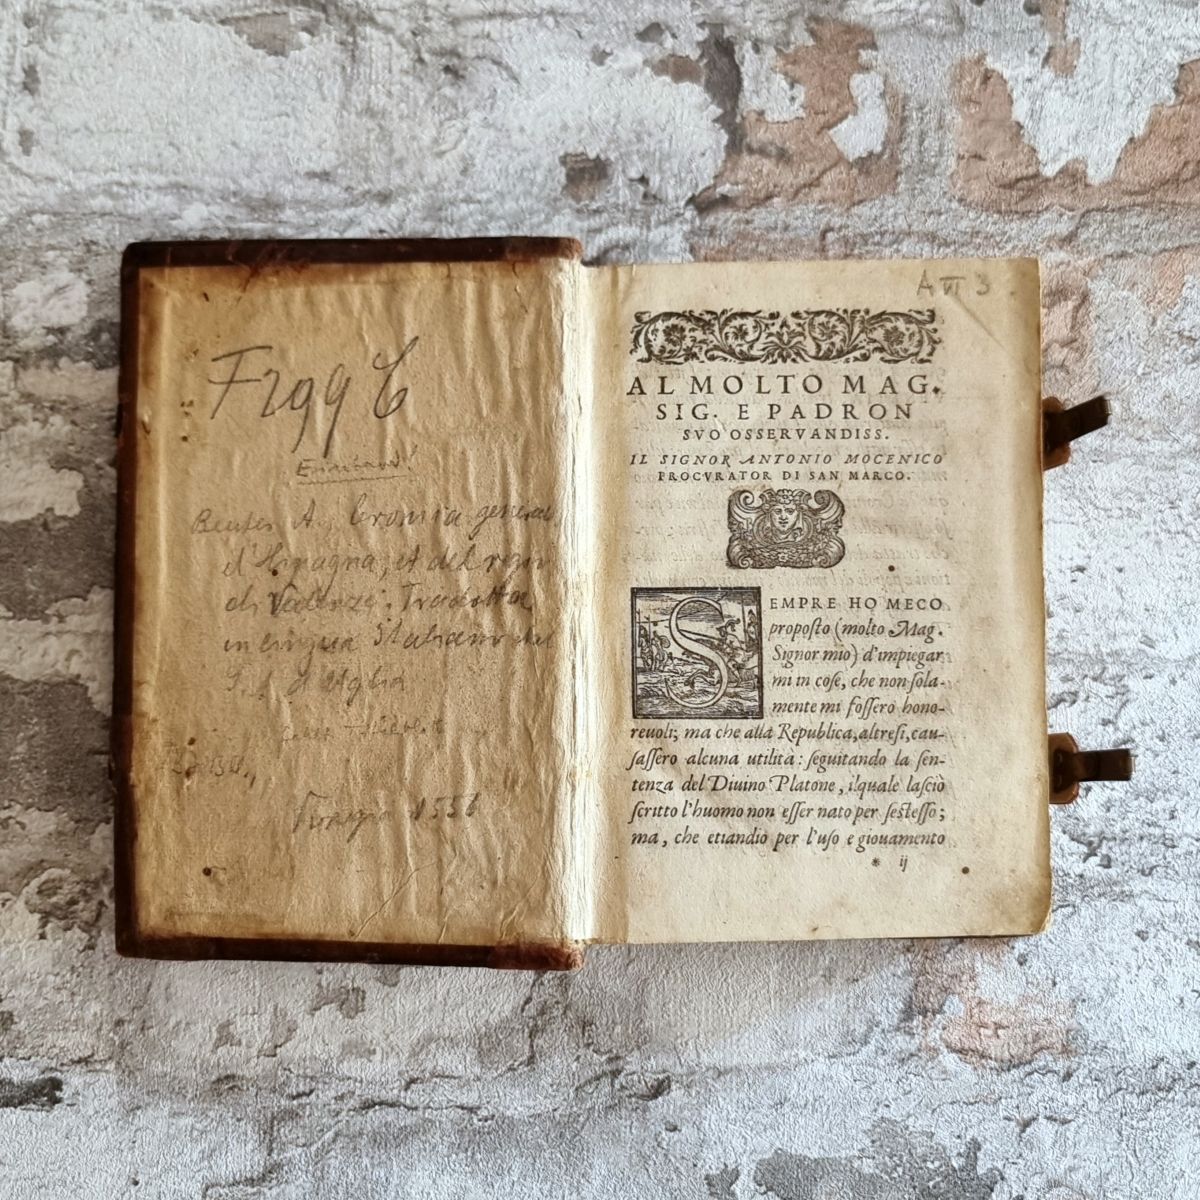 F 299 b
Einband!
Beuter A. Cronica general
d'Hispagna, et del regno
di Valenza. Tradotta
in lingua Italiana dal
S. A. d'Uglia
1556
A VI 3
AL MOLTO MAG.
SIG. E PADRON
SVO OSSERVANDISS.
IL SIGNOR ANTONIO MOCENICO
PROCVRATOR DI SAN MARCO.
SEMPRE HO MECO
proposto (molto Mag.
Signor mio) d'impiegar
mi in cose, che non sola-
mente mi fossero hono-
reuoli; ma che alla Republica, altresi, cau-
sassero alcuna utilità: seguitando la sen-
tenza del Diuino Platone, ilquale lasciò
scritto l'huomo non esser nato per sestesso;
ma, che etiandio per l'uso e giouamento
* ij